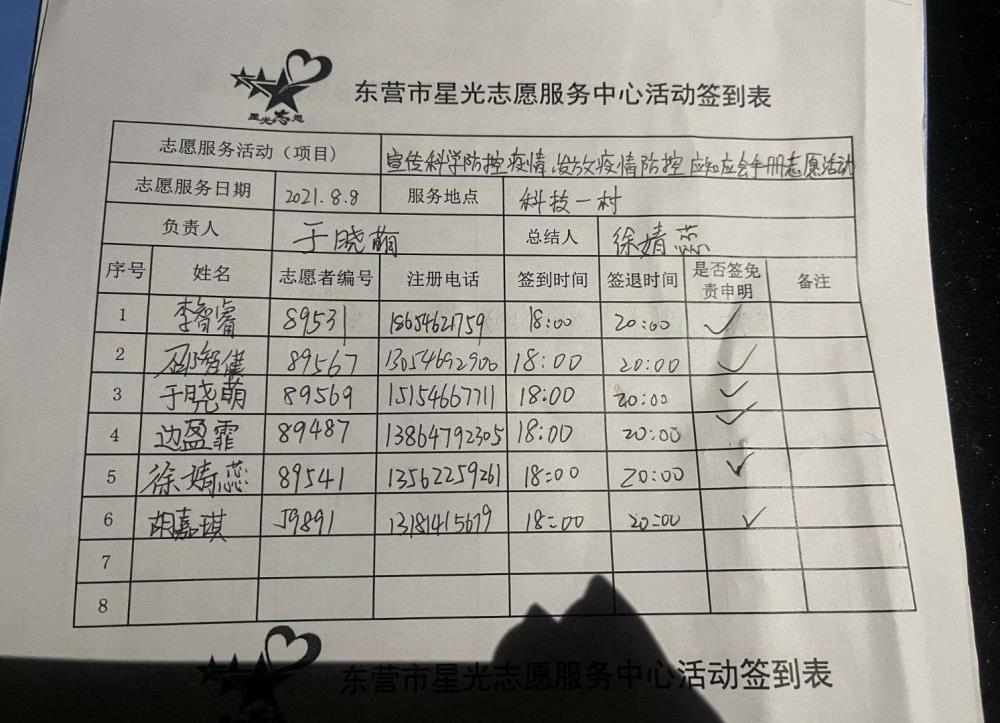 星光志愿
东营市星光志愿服务中心活动签到表
志愿服务活动（项目） 宣传科学防控疫情、发放疫情防控应知应会手册志愿活动
志愿服务日期 2021.8.8 服务地点 科技一村
负责人 于晓萌 总结人 徐婧蕊
序号 姓名 志愿者编号 注册电话 签到时间 签退时间 是否签免责申明 备注
1 李智睿 89531 18654621759 18:00 20:00 ✓
2 邵智健 89567 13054692900 18:00 20:00 ✓
3 于晓萌 89569 15154667711 18:00 20:00 ✓
4 边盈霏 89487 13864792305 18:00 20:00 ✓
5 徐婧蕊 89541 13562259261 18:00 20:00 ✓
6 胡嘉琪 J9891 13181415679 18:00 20:00 ✓
7
8
东营市星光志愿服务中心活动签到表